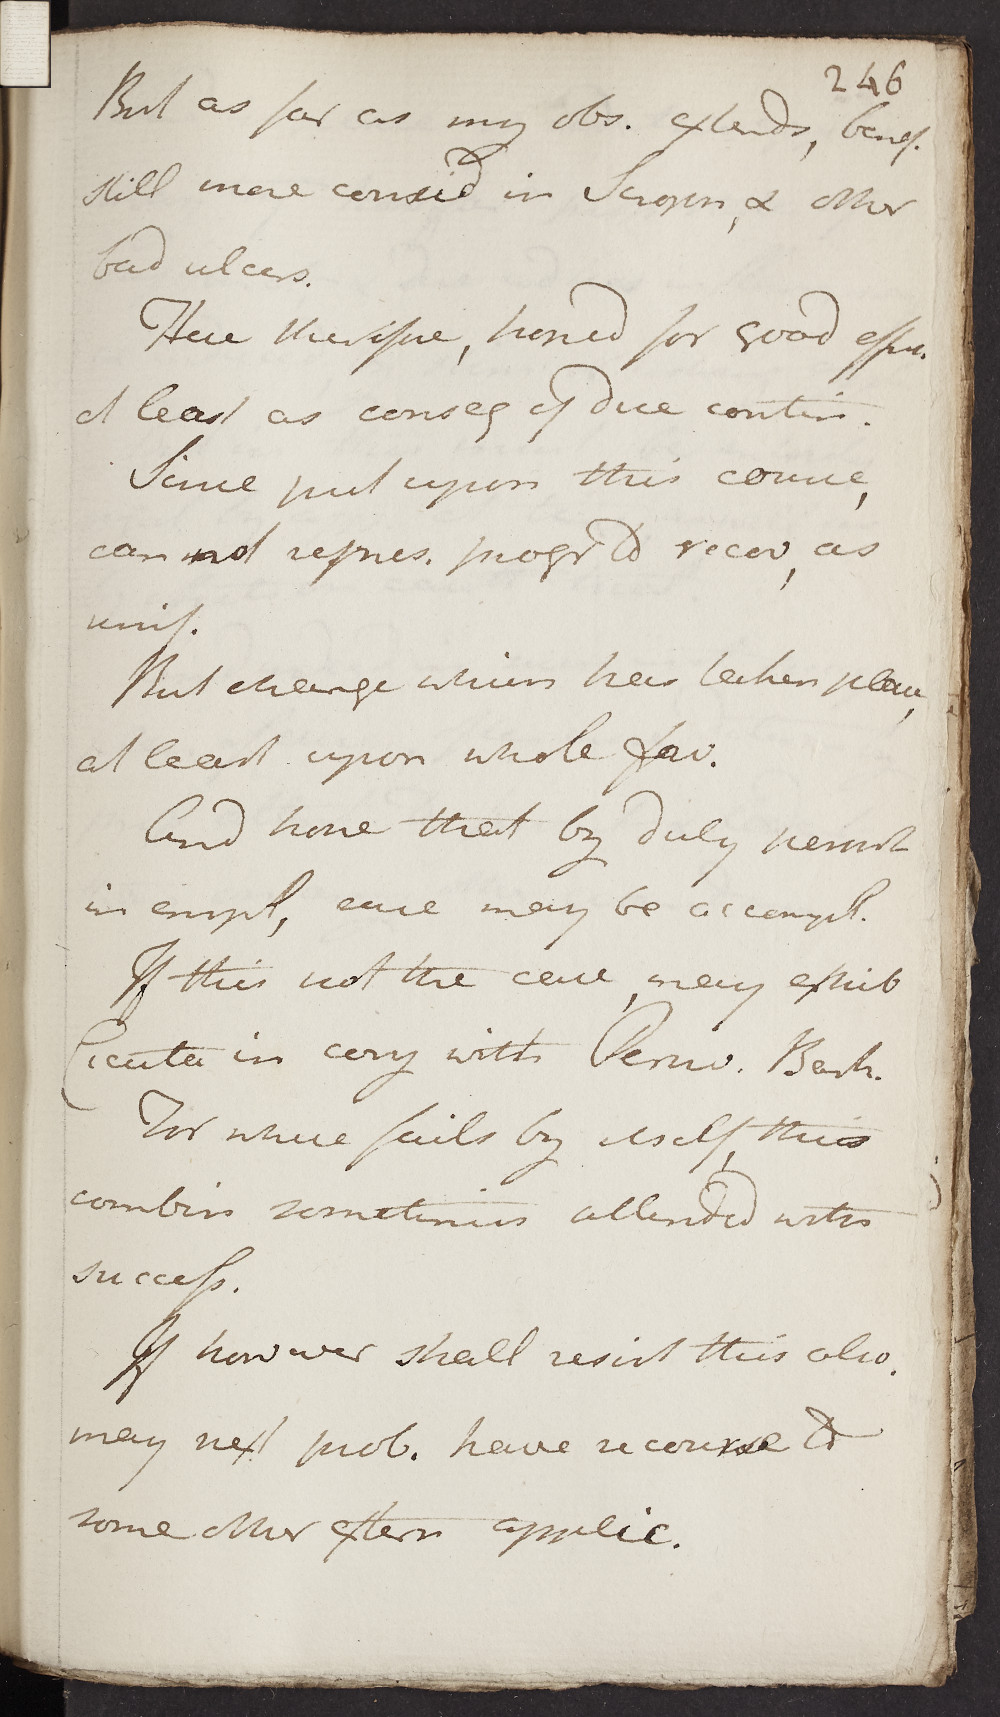 246
But as far as my obs. extends, benef.
still more consid in Scroph, & other
bad ulcers.
Here therefore, hoped for good effec.
at least as conseq of due contin.
Since put upon this course,
can not repres. progr to recov, as
unif.
But change which has taken place,
at least upon whole fav.
And hope that by duly persist
in empl, cure may be accompl.
If this not the case, may exhib
Cicuta in conj with Peruv. Bark.
For where fails by itself, this
combin sometimes attended with
success.
If however shall resist this also.
may next prob. have recourse to
some other extern applic.